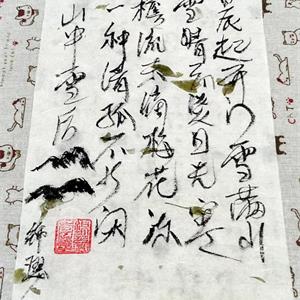 晨起开门雪满山
雪晴云淡日光寒
檐流未滴梅花冻
一种清孤不等闲
山中雪后
郑燮